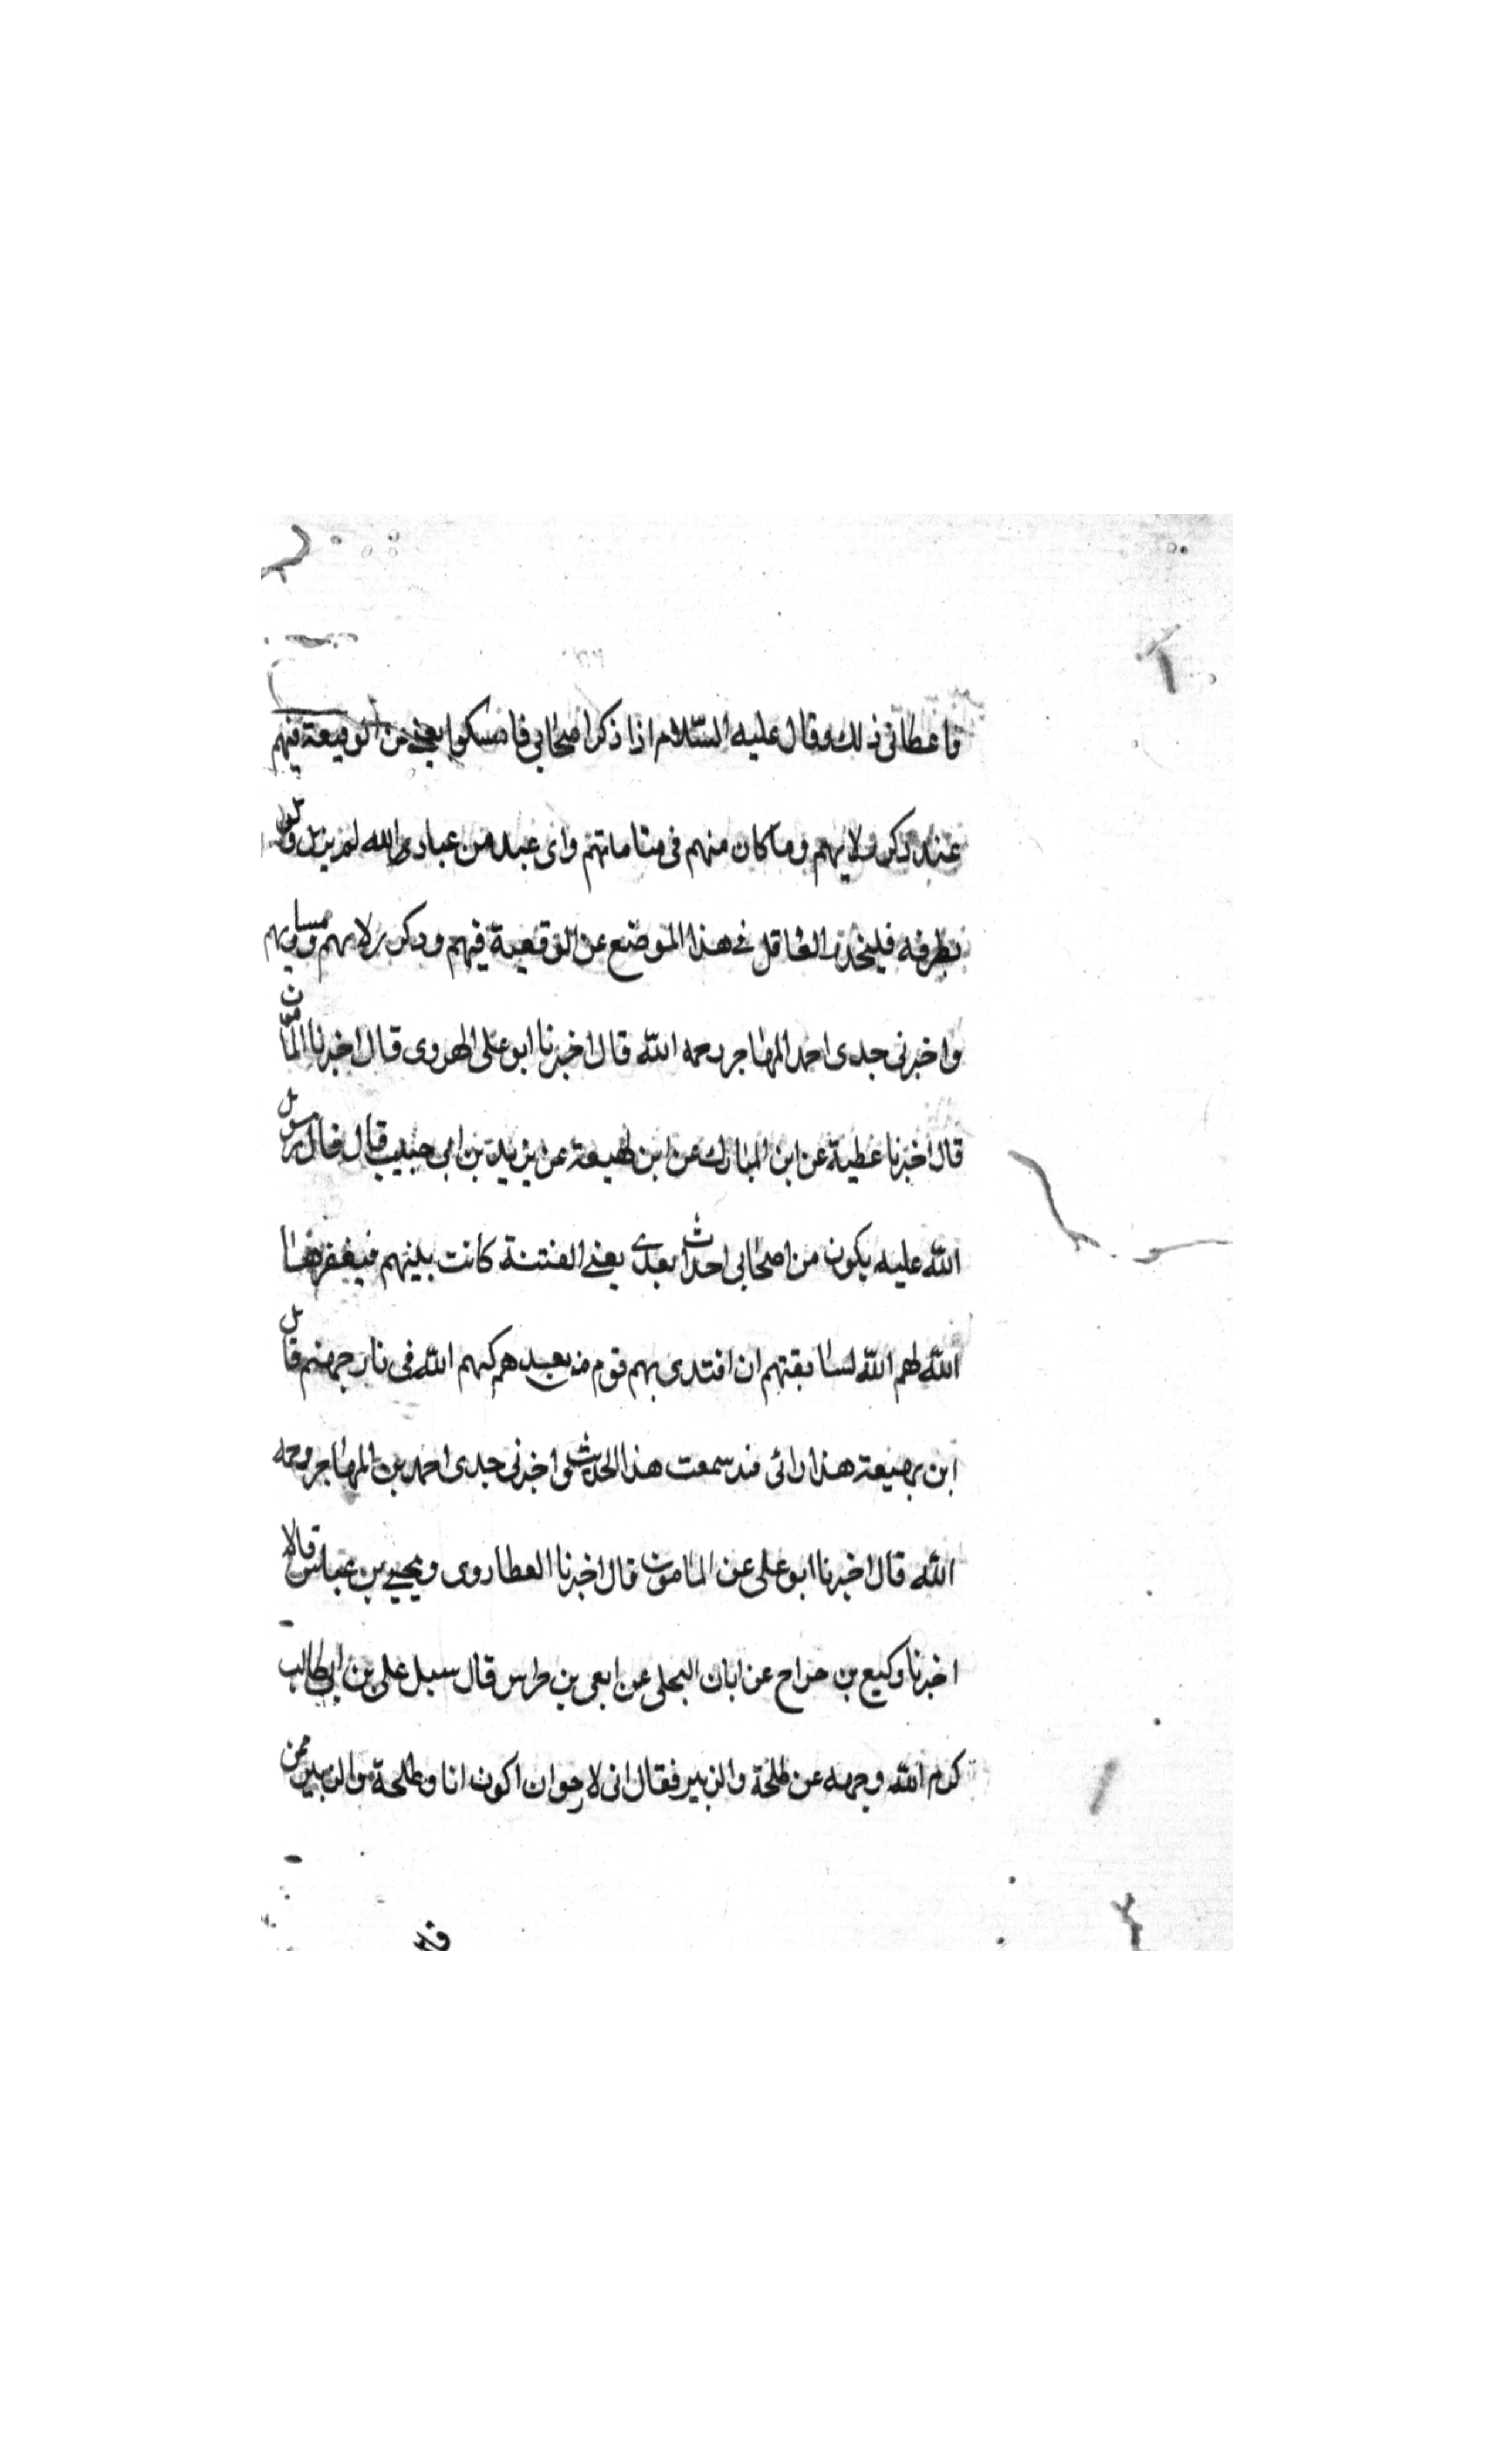 فاعطانى ذلك وقال عليه السّلام اذا ذكر اصحابى فامسكوا يعنى عن الوقيعة فيهم
عند ذكر ولايهم وما كان منهم فى مناماتهم واى عبد من عباد الله لم يزل
بطرفه فليحذر العاقل فى هذا الموضع عن الوقعية فيهم وذكر زلاتهم ومساويهم
واخبرنى جدى احمد المهاجر رحمه الله قال اخبرنا ابو على الهروى قال اخبرنا المأمون
قال اخبرنا عطية عن ابن المبارك عن ابن لهيعة عن يزيد بن ابى حبيب قال قال رسول
الله عليه يكون من اصحابى احداث بعدى يعنى الفتنة كانت بينهم فيغفرها
الله لهم الله لسابقتهم ان اقتدى بهم قوم من بعدهم كبهم الله فى نار جهنم قال
ابن بهيعة هذا رائى منذ سمعت هذا الحديث واخبرنى جدى احمد بن المهاجر رحمه
الله قال اخبرنا ابو على عن المامون قال اخبرنا العطاردى ويحيى بن عباس قالا
اخبرنا وكيع بن جراح عن ابان البجلى عن ابعى بن حراس قال سيل على بن ابى طالب
كرم الله وجهه عن طلحة والزبير فقال انى لارجوا ان اكون انا وطلحة والزبير ممن